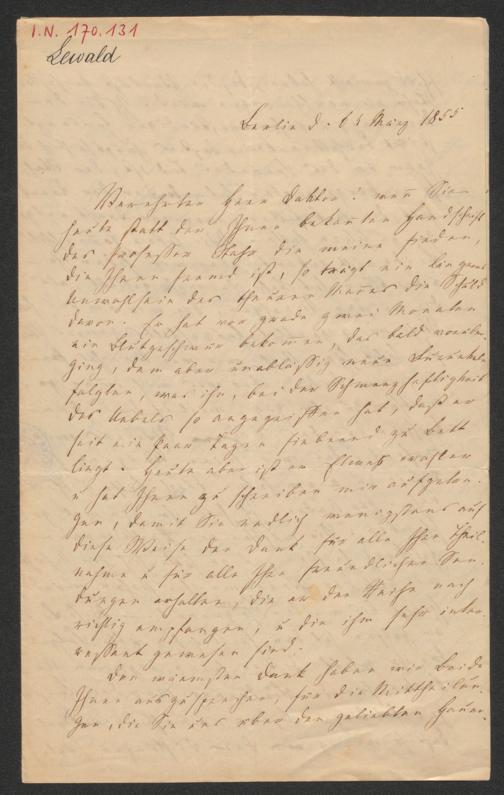 I.N. 170.131
Lewald
Berlin d. 6t März 1855
Verehrter Herr Doktor! wenn Sie
heute statt der Ihnen bekannten Handschrift
des Professor Stahr die meine finden,
die Ihnen fremd ist, so trägt ein längeres
Unwohlsein des theuren Mannes die Schuld
davon. Er hat vor grade zwei Monaten
ein Blutgeschwür bekommen, das bald vorüber-
ging, dem aber unablässig neue Furunkeln
folgten, was ihn, bei der Schmerzhaftigkeit
des Uebels so angegriffen hat, daß er
seit ein paar Tagen fiebernd zu Bett
liegt. Heute aber ist er Etwas wohler
u hat Ihnen zu schreiben mir aufgetra-
gen, damit Sie endlich wenigstens auf
diese Weise den Dank für alle Ihre Theil-
nahme u für alle Ihre freundlichen Sen-
dungen erhalten, die er der Reihe nach
richtig empfangen, u die ihm sehr inter-
essant gewesen sind.
Den wärmsten Dank haben wir Beide
Ihnen auszusprechen, für die Mittheilun-
gen, die Sie uns über den geliebten